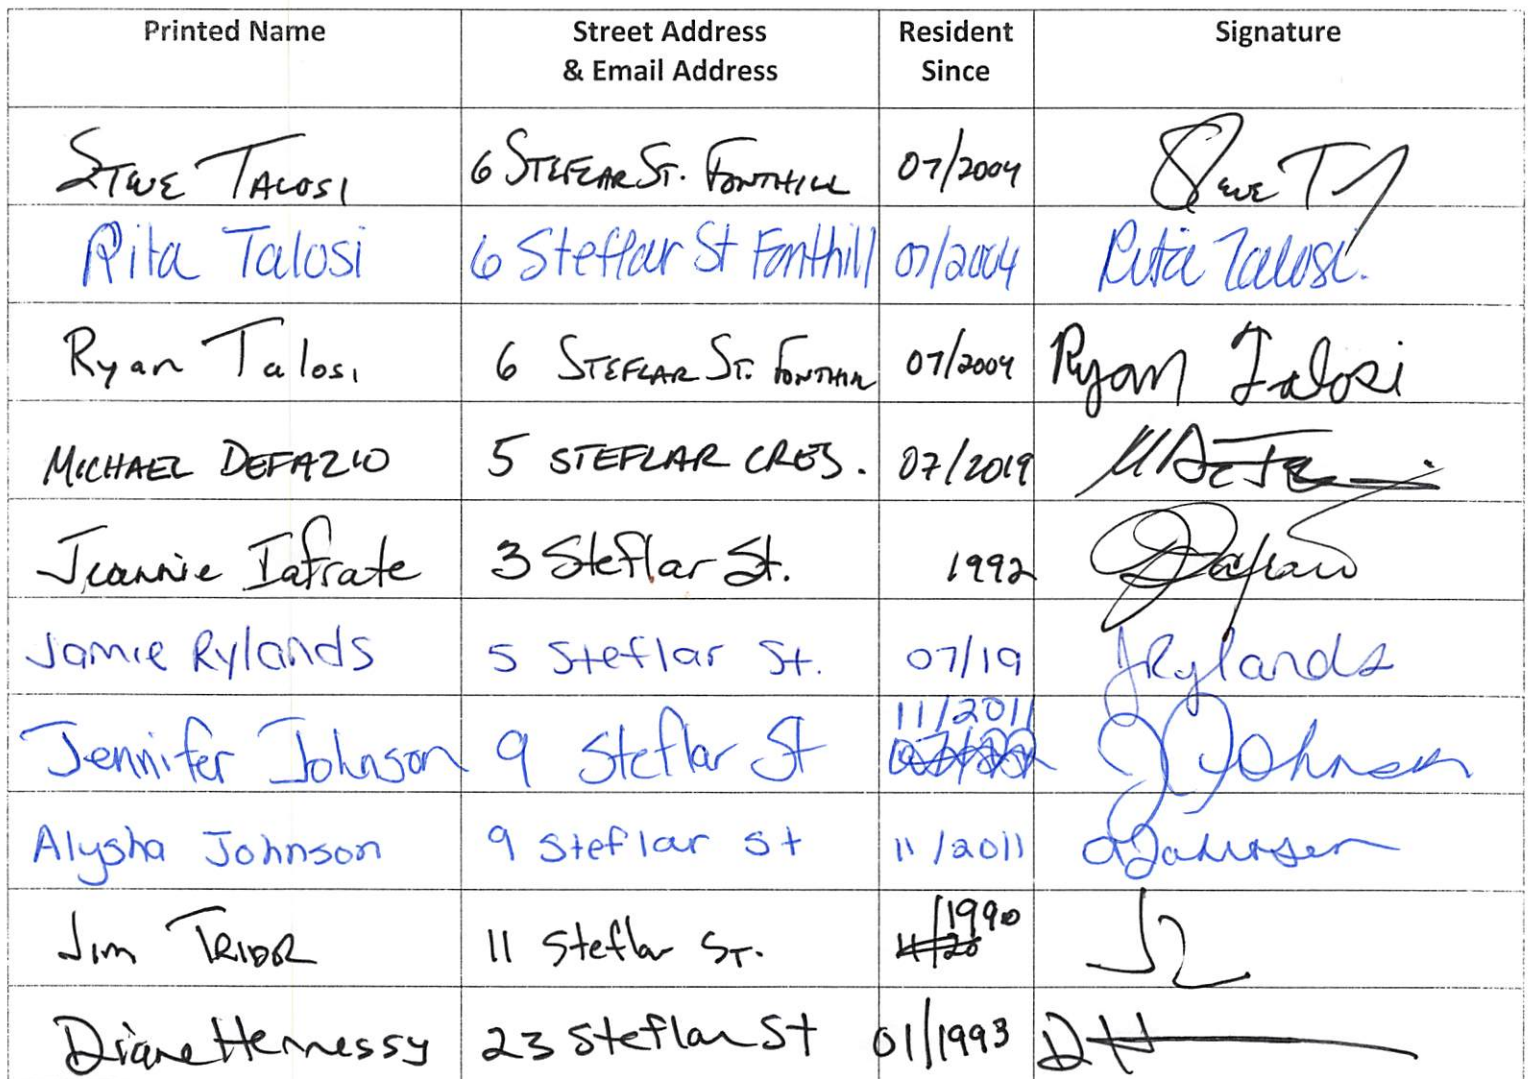 Printed Name Street Address Resident Signature
& Email Address Since
STEVE TALOSI 6 STEFLAR ST. FONTHILL 07/2004 Steve T
Rita Talosi 6 Steflar St Fonthill 07/2004 Rita Talosi.
Ryan Talosi 6 STEFLAR ST. FONTHILL 07/2004 Ryan Talosi
MICHAEL DEFAZIO 5 STEFLAR CRES. 07/2019
Jeannie Iafrate 3 Steflar St. 1992
Jamie Rylands 5 Steflar St. 07/19 JRylands
11/2011
Jennifer Johnson 9 Steflar St J Johnson
Alysha Johnson 9 Steflar St 11/2011 AJohnson
/1990
Jim 11 Steflar ST.
Diane Hennessy 23 Steflar St 01/1993 DH